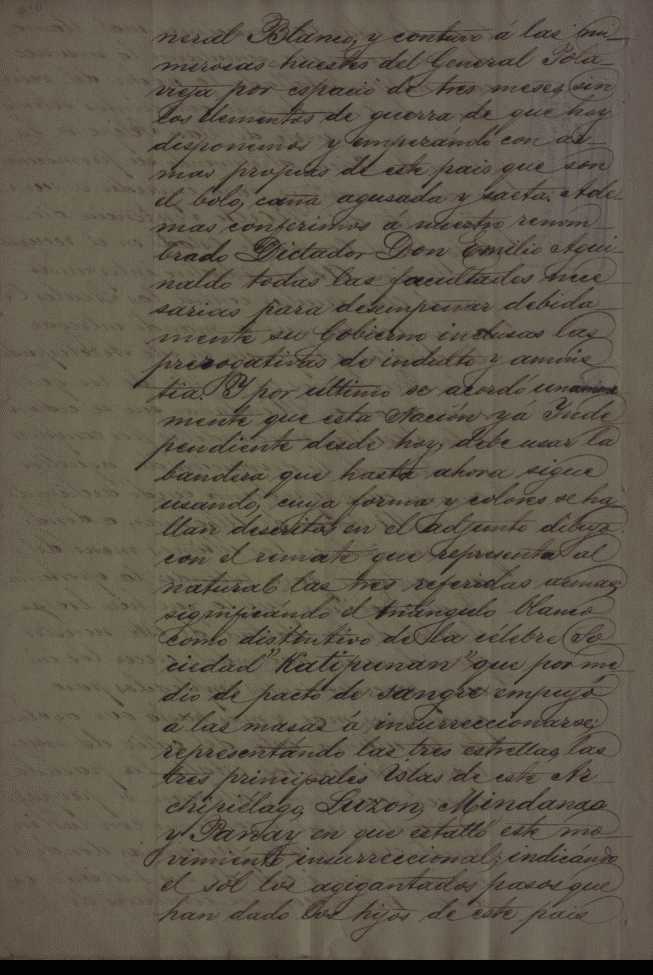 neral Blanco, y contuvo á las nu-
merosas huestes del General Pola-
vieja por espacio de tres meses, sin
los elementos de guerra de que hoy
disponemos y empezándo con ar-
mas propias de este pais que son
el bolo, caña aguzada y saeta. Ade-
mas conferimos á nuestro renom-
brado Dictador Don Emilio Agui-
naldo todas las facultades nece
sarias para desempeñar debida
mente su Gobierno inclusas las
prerogativas de indulto y amnis
tia. Y por ultimo se acordó unanime
mente que esta Nación yá Inde
pendiente desde hoy, debe usar la
bandera que hasta ahora sigue
usando, cuya forma y colores se ha
llan descritos en el adjunto dibujo
con el remate que representa al
natural las tres referidas armas;
significándo el triángulo blanco
como distintivo de la célebre So
ciedad "Katipunan" que por me
dio de pacto de sangre empujó
á las masas á insurreccionarse;
representándo las tres estrellas, las
tres principales Islas de este Ar
chipiélago, Luzon, Mindanao
y Panay en que estalló este mo
vimiento insurreccional; indicando
el sol los agigantados pasos que
han dado los hijos de este pais